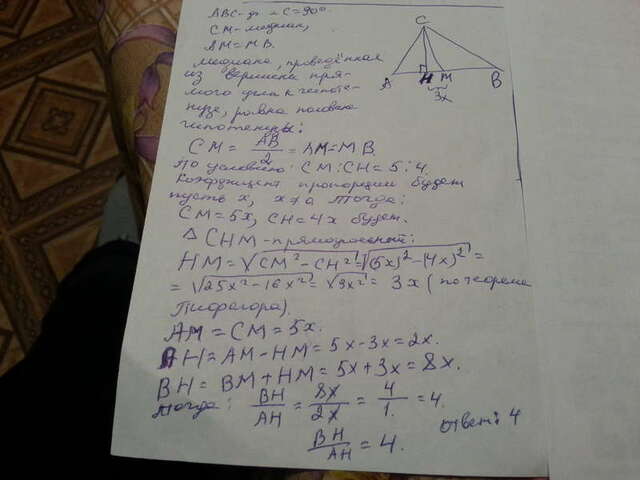 ABC-дн ∠C=90°.
CM-медиан,
AM=MB.
Медиана, проведённая
из вершина пря-
мого угла к гипоте-
нузе, равна половине
гипотенузы:
CM = AB/2 = AM=MB.
По условию: CM:CH=5:4.
Коэффициент пропорции будет
пусть x, x≠0 Тогда:
CM=5x, CH=4x будет.
△CHM-прямоугольный:
HM=√CM²-CH²=√(5x)²-(4x)²=
=√25x²-16x²=√9x²=3x (по теореме
Пифагора).
AM=CM=5x.
AH=AM-HM=5x-3x=2x.
BH=BM+HM=5x+3x=8x.
Тогда: BH/AH = 8x/2x = 4/1 = 4.
BH/AH = 4.
Ответ: 4
C
A
H
M
B
3x